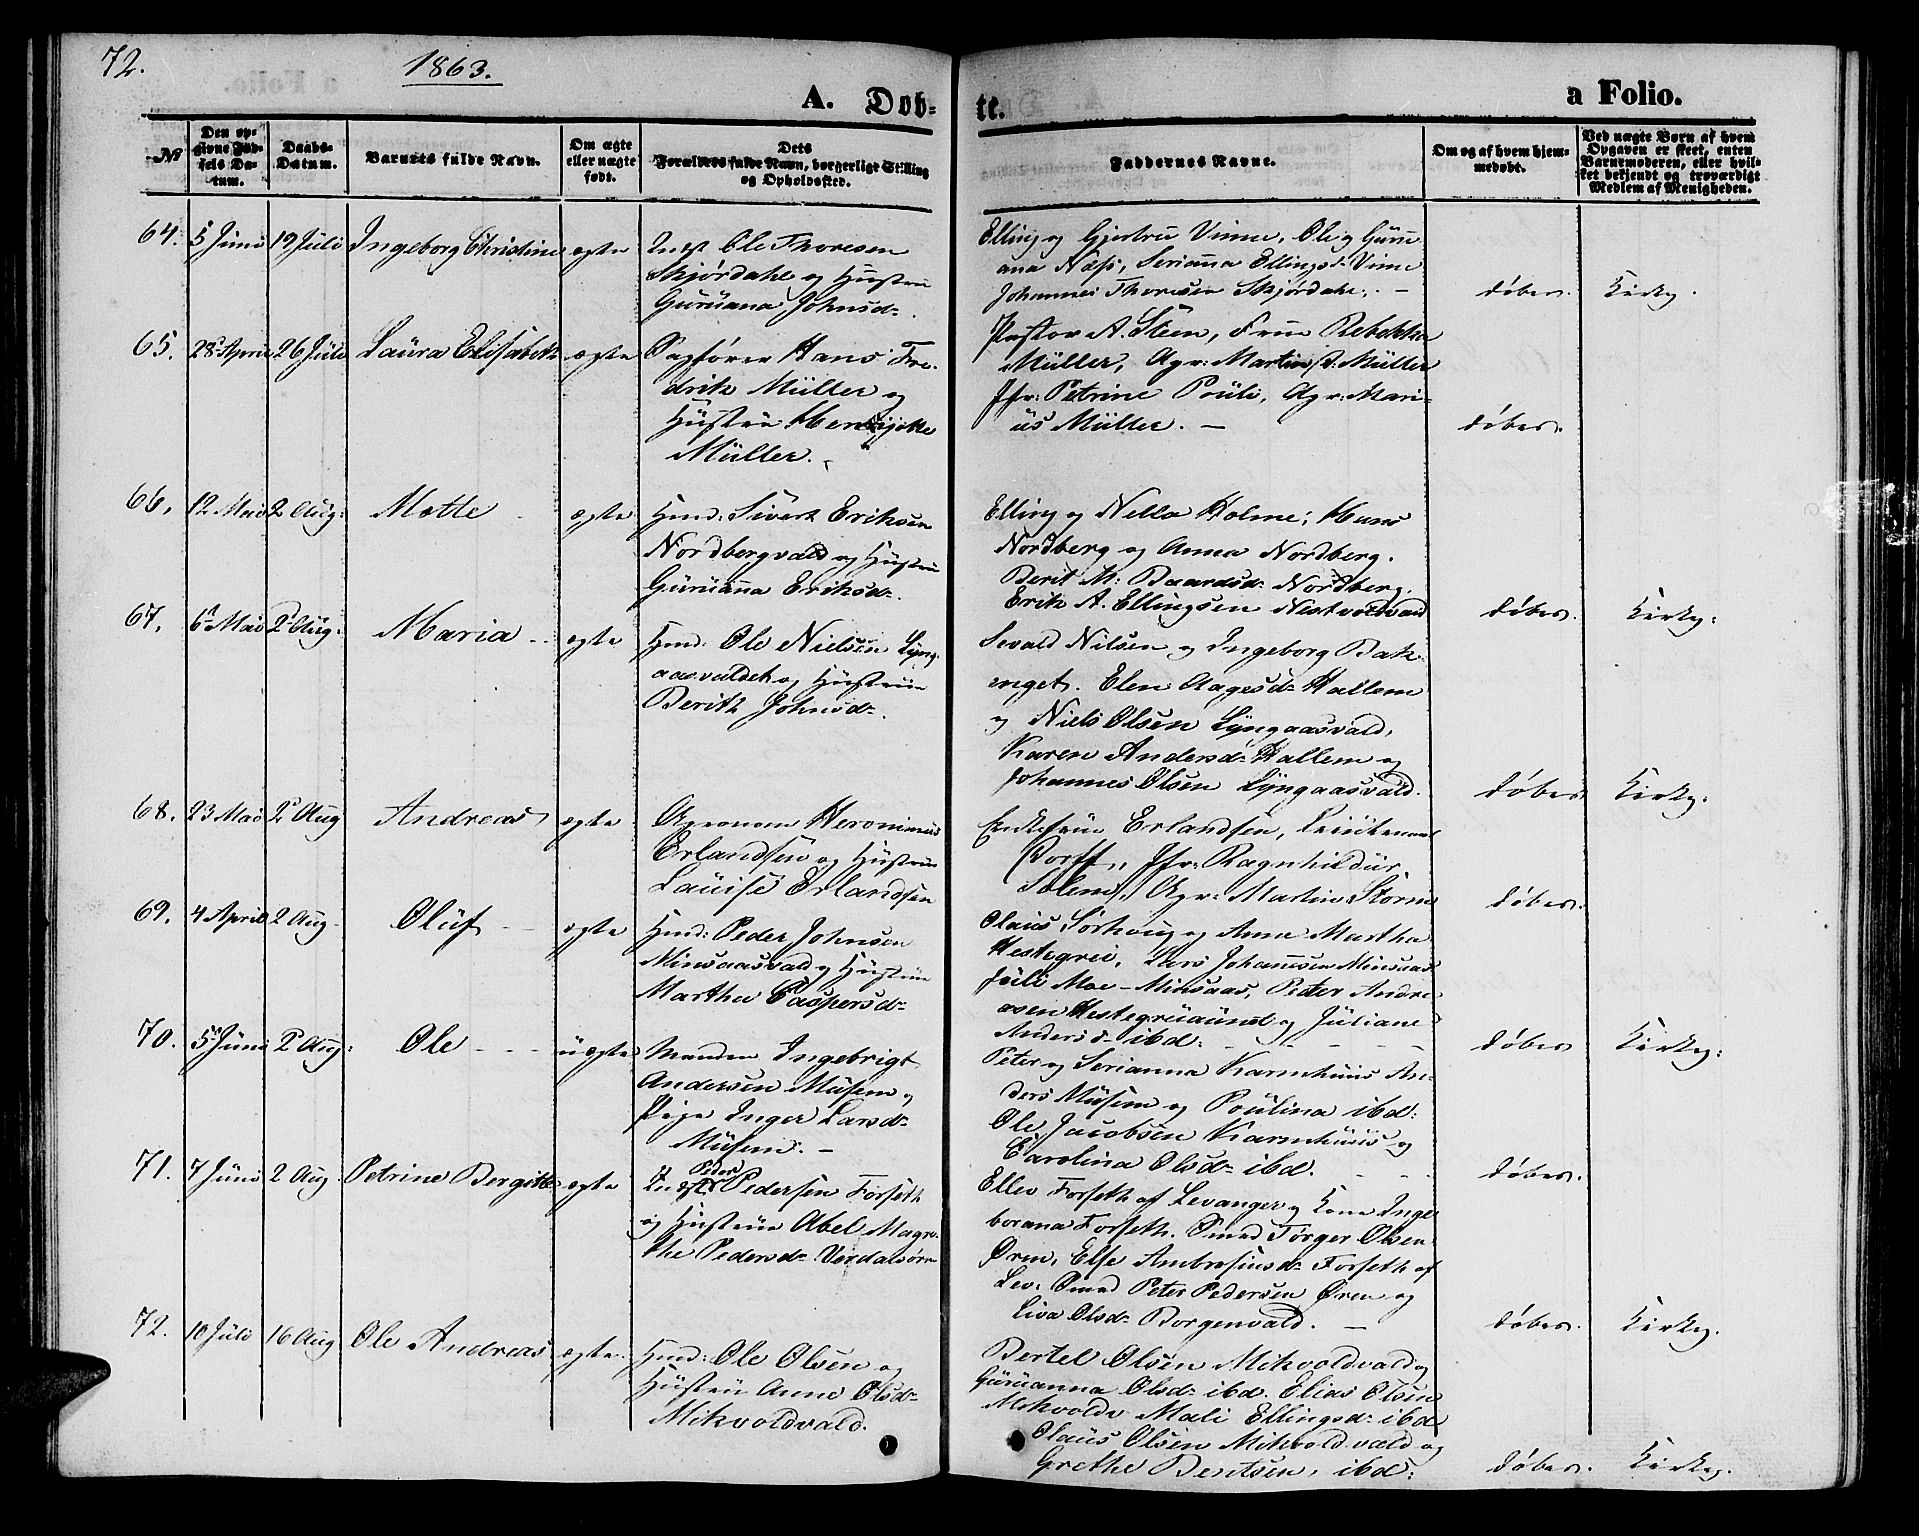 72.
1863.
A. Døb-
te.
a Folio.
№
Den op-
givne Fød-
sels Da-
tum.
Daabs-
Datum.
Barnets fulde Navn.
Om ægte
eller uægte
født.
Dets
Forældres fulde Navn, borgerlige Stilling
og Opholdssted.
Faddernes Navne.
Om og af hvem hjem-
medøbt.
Ved uægte Børn af hvem
Opgaven er skeet, enten
Barnemoderen, eller hvil-
ket bekjendt og troværdigt
Medlem af Menigheden.
64. 5 Juni 19 Juli Ingeborg Christine ægte
Indst Ole Thoresen
Skjørdahl og Hustru
Guruana Johnsd.
Elling og Gjertru Vinne, Ole og Guru
ana Næss, Serianna Ellingsd. Vinne
Johannes Thoresen Skjørdahl. døber. Kirkg.
65. 28 April 26 Juli Laura Elisabeth ægte
Sagfører Hans Fre-
drik Müller og
Hustru
Müller.
Pastor A. Steen, Frue Rebekka
Müller, Agr: Martin Müller
Jfr: Petrine Pauli, Agr: Mari-
us Müller. døber.
66. 12 Mai 2 Aug: Mette ægte
Hmd: Sivert Eriksen
Nordbergvald og Hustru
Guruanna Eriksd.
Elling og Nella Holme, Hans
Nordberg og Anna Nordberg.
Berit M: Baardsd. Nordberg.
Erik A. Ellingsen døber. Kirkg:
67. 6 Mai 2 Aug: Maria ægte
Hmd: Ole Nielsen Lyng-
aasvaldet og Hustru
Berith Johnsd.
Sevald Nilsen og Ingeborg Bak-
enget. Elen Aagesd. Hallem
og Niels Olsen Lyngaasvald,
Karen Andersd. Hallem og
Johannes Olsen Lyngaasvald. døber Kirkg:
68. 23 Mai 2 Aug Andreas ægte
Agronom Heronimus
Erlandsen og Hustru
Lauise Erlandsen
Enkefrue Erlandsen, Leiutenant
Jfr: Ragnhildur
Solem, Agr: Martin Storm døber.
69. 4 April 2 Aug. Oluf ægte
Hmd: Peder Johnsen
Minsaasvald og Hustru
Martha Caspersd.
Olaus Sørhoug og Anne Martha
Hestegrei, Lars Johannesen Minsaas
Juli Moe-Minsaas, Peter Andre-
asen Hestegruaund og Juliane
Andersd. ibd. døber Kirkg:
70. 5 Juni 2 Aug: Ole uægte
Manden Ingebrigt
Andersen Musem og
Pige Inger Larsd.
Musem.
Peter og Serianna Karmhuus An-
ders Musem og Poulina ibd:
Ole Jacobsen Karmhuus og
Carolina Olsd. ibd. døber.
71. 7 Juni 2 Aug. Petrine Bergitte ægte
Peder
Indst Pedersen Forseth
og Hustrue Abel Magre-
the Pedersd. Verdalsøren
Ellev Forseth af Levanger og Kone Inge-
borana Forseth. Smed Tørger Olsen
Øren, Else Ambrosiusd. Forseth af
Lev: Smed Peter Pedersen Øren og
Liva Olsd. Borgenvald. døber. Kirkg.
72. 10 Juli 16 Aug Ole Andreas ægte
Hmd: Ole Olsen og
Hustru Anne Olsd.
Mikvoldvald.
Bertel Olsen Mikvoldvald og
Guruanna Olsd. ibd. Elias Olsen
Mikvoldv Mali Ellingsd. ibd
Olaus Olsen Mikvoldvald og
Grethe Bentsen, ibd: døber. Kirkg.